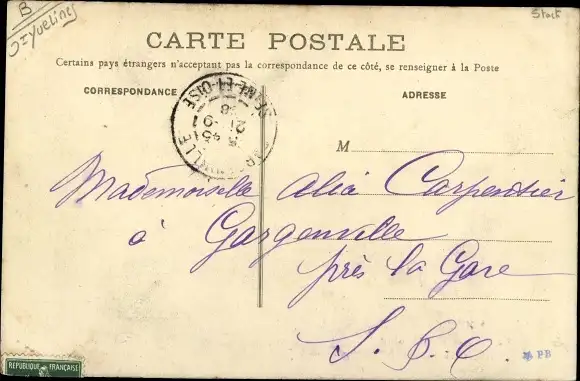 B
Yvelines
Stock
CARTE POSTALE
Certains pays étrangers n'acceptant pas la correspondance de ce côté, se renseigner à la Poste
CORRESPONDANCE
ADRESSE
GARGENVILLE
SEINE-ET-OISE
M
Mademoiselle Alia Carpentier
à Gargenville
près la Gare
S. & O.
PB
REPUBLIQUE FRANÇAISE